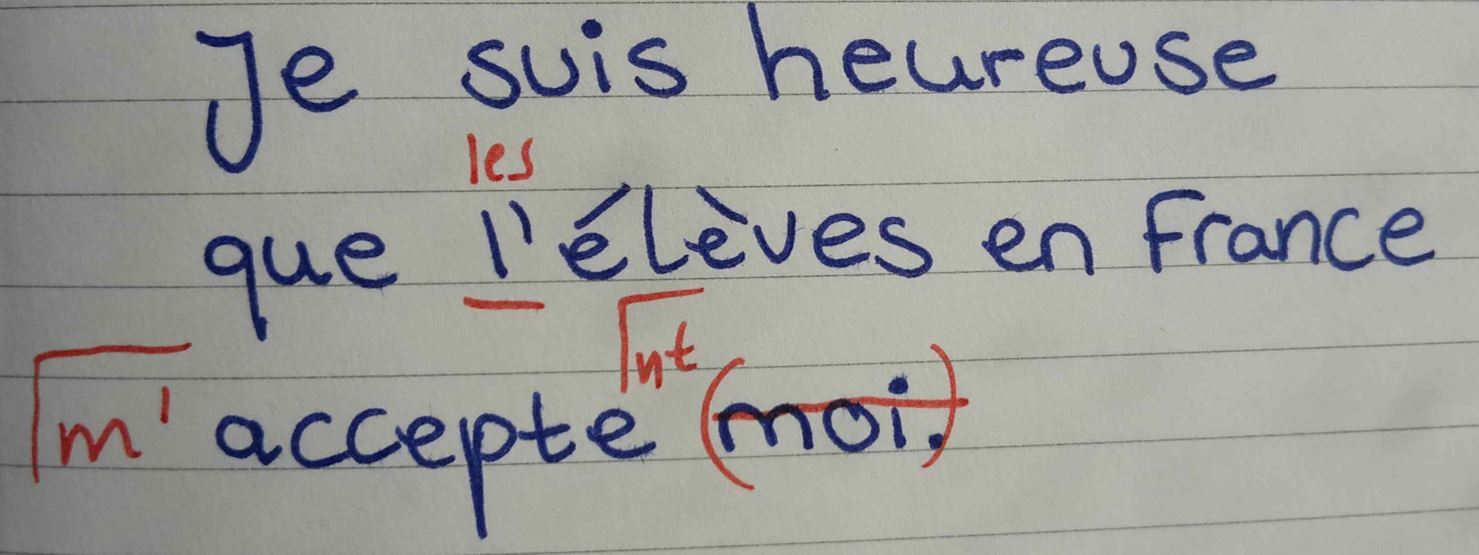 Je suis heureuse
les
que l'élèves en France
nt
m' accepte (moi.)